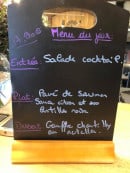 Menu du jour
Entrée: Salade cocktail P.
Plat: Pavé de saumon
Sauce citron et ses
lentilles
Dessert: Gauffre chantilly
ou nutella.